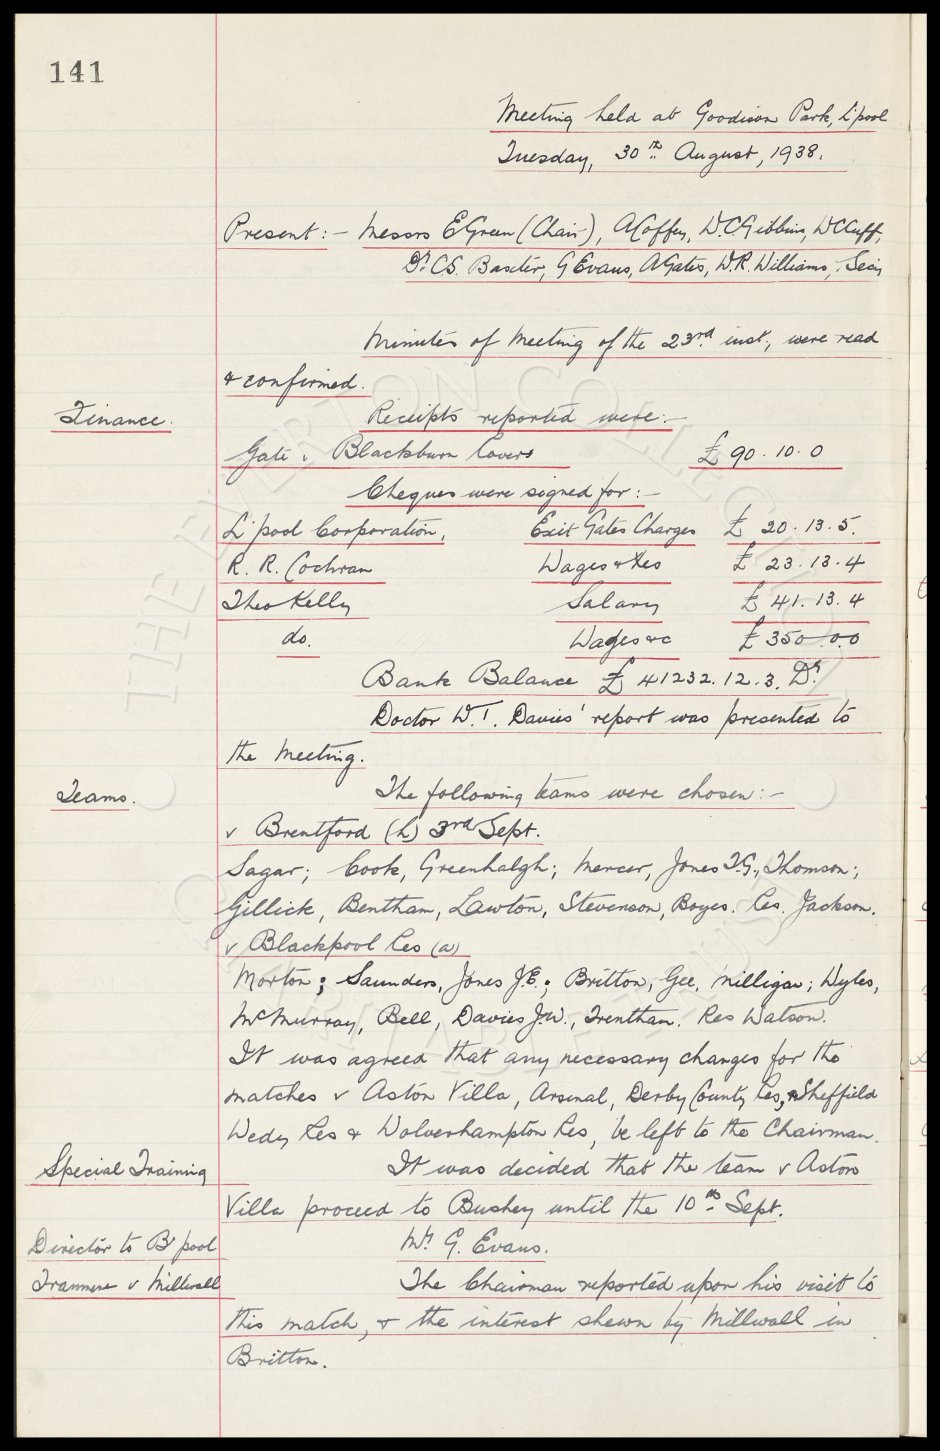 141
Meeting held at Goodison Park, L'pool
Tuesday, 30th August, 1938.
Present:- Messrs E Green (Chair), A Coffey, W.C. Gibbins, W C Cuff,
Dr. C.S. Baxter, G Evans, A Gates, W.R. Williams, Secy
Minutes of Meeting of the 23rd inst., were read
& confirmed.
Finance. Receipts reported were:-
Gate v Blackburn Rovers £ 90. 10. 0
Cheques were signed for:-
L'pool Corporation, Exit Gates Charges £ 20. 13. 5.
R. R. Cochran Wages & Xes £ 23. 13. 4
Theo Kelly Salary £ 41. 13. 4
do. Wages &c £ 350. 0. 0
Bank Balance £ 41232. 12. 3. Dr.
Doctor W.T. Davies' report was presented to
the Meeting.
Teams. The following teams were chosen:-
v Brentford (h) 3rd Sept.
Sagar; Cook, Greenhalgh; Mercer, Jones T.G., Thomson;
Gillick, Bentham, Lawton, Stevenson, Boyes. Res. Jackson.
v Blackpool Res (a)
Morton; Saunders, Jones J.E.; Britton, Gee, Milligan; Wyles,
McMurray, Bell, Davies J.W., Trentham. Res Watson.
It was agreed that any necessary changes for the
matches v Aston Villa, Arsenal, Derby County Res, & Sheffield
Wedy Res & Wolverhampton Res, be left to the Chairman.
Special Training It was decided that the team v Aston
Villa proceed to Bushey until the 10th Sept.
Director to B'pool Mr G. Evans.
Tranmere v Millwall The Chairman reported upon his visit to
this match, & the interest shewn by Millwall in
Britton.
THE EVERTON COLLECTION
CHARITABLE TRUST